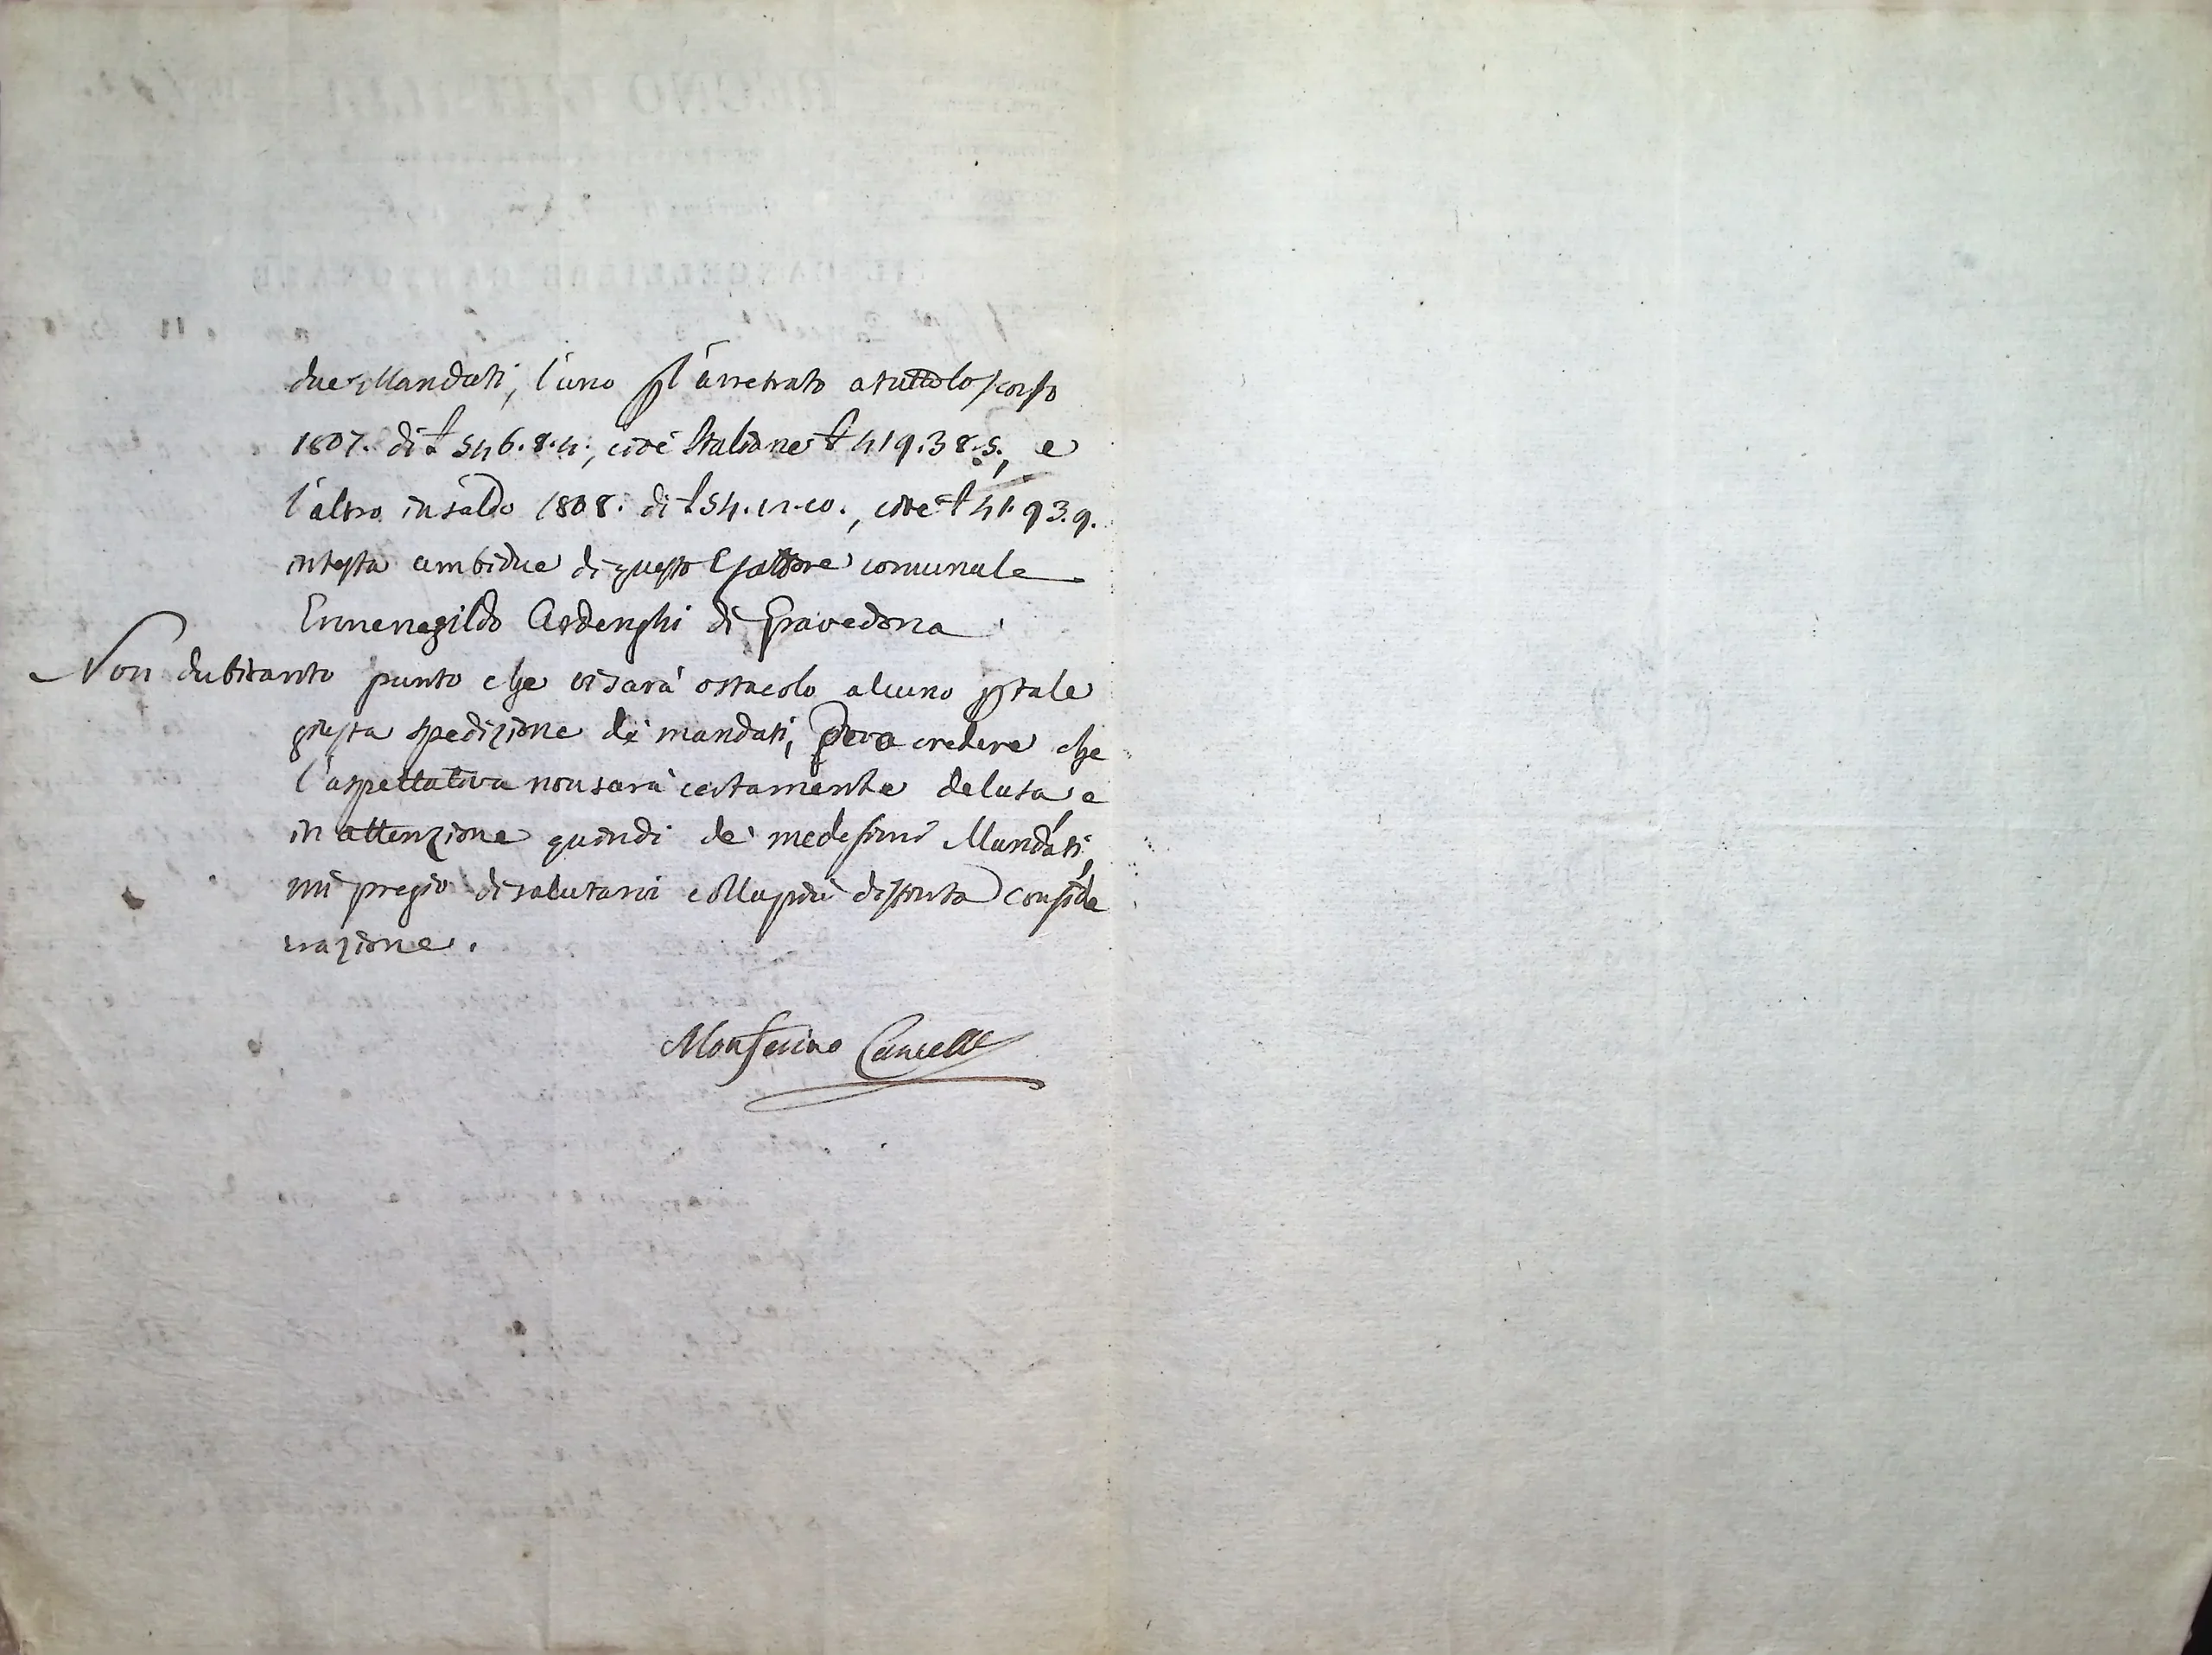 due Mandati, l'uno pl'arretrato a tutto lo scorso
1807. di £ 546.8.4., cioè Italiane £ 419.38.5., e
l'altro in saldo 1808. di £ 54.12.10., cioè £ 41.93.9.
in testa ambidue di questo Esattore comunale
Ermenegildo Ardenghi di Gravedona.
Non dubitanto punto che vi sarà ostacolo alcuno p tale
spedizione dei mandati, credere che
l'aspettativa non sarà certamente delusa, e
in attenzione quindi de' medesimi Mandati,
mi pregio di salutarvi colla più distinta conside
razione.
Cancelle